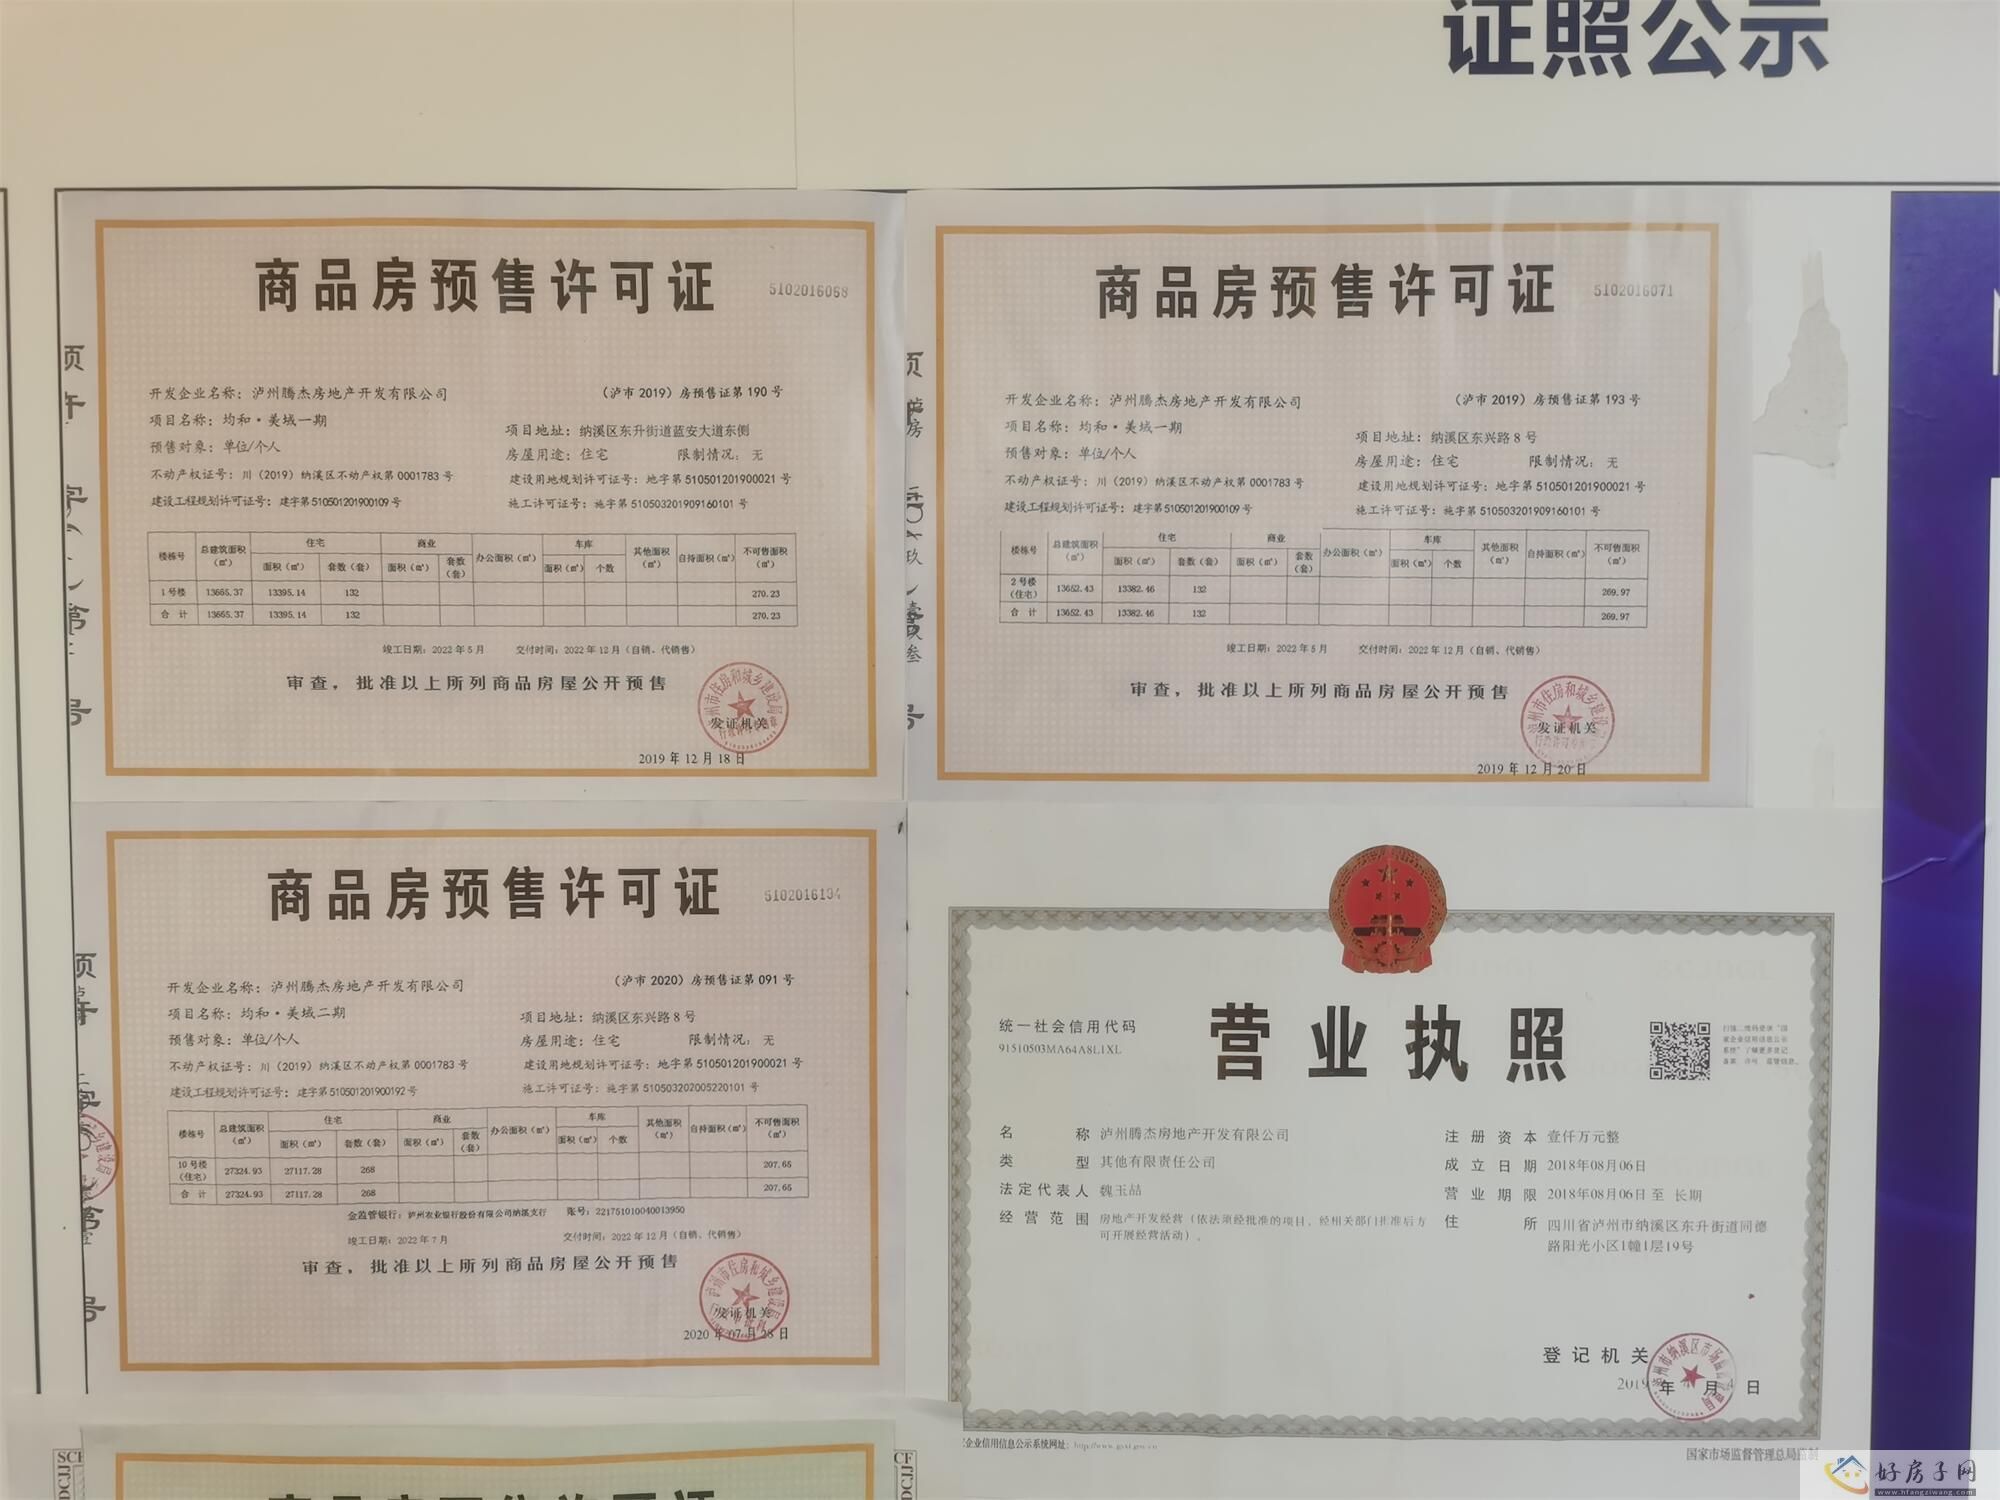 证照公示
商品房预售许可证
5102016068
开发企业名称：泸州腾杰房地产开发有限公司
（泸市 2019）房预售证第 190 号
项目名称：均和·美域一期
项目地址：纳溪区东升街道蓝安大道东侧
预售对象：单位/个人
房屋用途：住宅 限制情况：无
不动产权证号：川（2019）纳溪区不动产权第 0001783 号
建设用地规划许可证号：地字第 510501201900021 号
建设工程规划许可证号：建字第 510501201900109 号
施工许可证号：施字第 510503201909160101 号
楼栋号 总建筑面积（㎡） 住宅 商业 办公面积（㎡） 车库 其他面积（㎡） 自持面积（㎡） 不可售面积（㎡）
面积（㎡） 套数（套） 面积（㎡） 套数（套） 面积（㎡） 个数
1 号楼 13665.37 13395.14 132 270.23
合 计 13665.37 13395.14 132 270.23
竣工日期：2022 年 5 月 交付时间：2022 年 12 月（自销、代销售）
审查，批准以上所列商品房屋公开预售
发证机关
2019 年 12 月 18 日
商品房预售许可证
5102016071
开发企业名称：泸州腾杰房地产开发有限公司
（泸市 2019）房预售证第 193 号
项目名称：均和·美域一期
项目地址：纳溪区东兴路 8 号
预售对象：单位/个人
房屋用途：住宅 限制情况：无
不动产权证号：川（2019）纳溪区不动产权第 0001783 号
建设用地规划许可证号：地字第 510501201900021 号
建设工程规划许可证号：建字第 510501201900109 号
施工许可证号：施字第 510503201909160101 号
楼栋号 总建筑面积（㎡） 住宅 商业 办公面积（㎡） 车库 其他面积（㎡） 自持面积（㎡） 不可售面积（㎡）
面积（㎡） 套数（套） 面积（㎡） 套数（套） 面积（㎡） 个数
2 号楼（住宅） 13652.43 13382.46 132 269.97
合 计 13652.43 13382.46 132 269.97
竣工日期：2022 年 5 月 交付时间：2022 年 12 月（自销、代销售）
审查，批准以上所列商品房屋公开预售
发证机关
2019 年 12 月 20 日
商品房预售许可证
5102016134
开发企业名称：泸州腾杰房地产开发有限公司
（泸市 2020）房预售证第 091 号
项目名称：均和·美域二期
项目地址：纳溪区东兴路 8 号
预售对象：单位/个人
房屋用途：住宅 限制情况：无
不动产权证号：川（2019）纳溪区不动产权第 0001783 号
建设用地规划许可证号：地字第 510501201900021 号
建设工程规划许可证号：建字第 510501201900192 号
施工许可证号：施字第 510503202005220101 号
楼栋号 总建筑面积（㎡） 住宅 商业 办公面积（㎡） 车库 其他面积（㎡） 自持面积（㎡） 不可售面积（㎡）
面积（㎡） 套数（套） 面积（㎡） 套数（套） 面积（㎡） 个数
10 号楼（住宅） 27324.93 27117.28 268 207.65
合 计 27324.93 27117.28 268 207.65
金监管银行：泸州农业银行股份有限公司纳溪支行 账号：22175101040013950
竣工日期：2022 年 7 月 交付时间：2022 年 12 月（自销、代销售）
审查，批准以上所列商品房屋公开预售
发证机关
2020 年 07 月 28 日
营业执照
统一社会信用代码
91510503MA64A8L1XL
名 称 泸州腾杰房地产开发有限公司
类 型 其他有限责任公司
法定代表人 魏玉喆
经营范围 房地产开发经营（依法须经批准的项目，经相关部门批准后方
可开展经营活动）。
注册资本 壹仟万元整
成立日期 2018年08月06日
营业期限 2018年08月06日 至 长期
住 所 四川省泸州市纳溪区东升街道同德
路阳光小区1幢1层19号
登记机关
2019 年 月 4 日
企业信用信息公示系统网址：http://www.gsxt.gov.cn
国家市场监督管理总局监制
商品房预售许可证
好房子网
www.hfangziwang.com